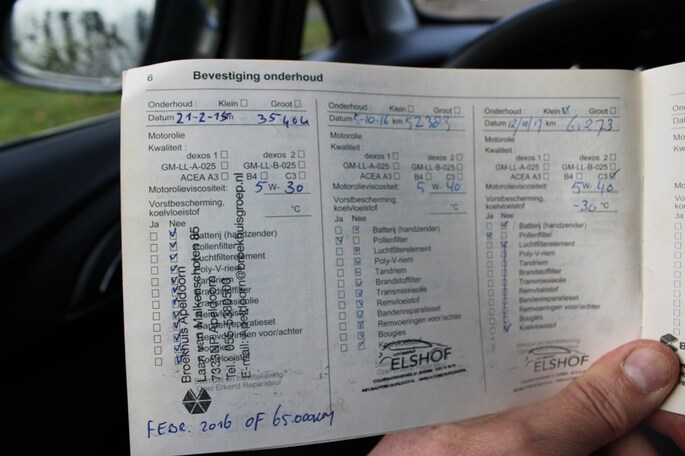 6 Bevestiging onderhoud
Onderhoud : Klein Groot
Datum 21-2-15 km 35404
Motorolie
Kwaliteit :
dexos 1 dexos 2
GM-LL-A-025 GM-LL-B-025
ACEA A3 B4 C3
Motorolieviscositeit: 5 W- 30
Vorstbescherming,
koelvloeistof °C
Ja Nee
Batterij (handzender)
Pollenfilter
Luchtfilterelement
Poly-V-riem
Broekhuis Apeldoorn
Laan van Malkenschoten 85
Apeldoorn
E-mail: Apeldoorn@broekhuisgroep.nl
Opel Erkend Reparateur
FEBR. 2016 OF 65.000KM
Onderhoud : Klein Groot
Datum 10-16 km 52383
Motorolie
Kwaliteit :
dexos 1 dexos 2
GM-LL-A-025 GM-LL-B-025
ACEA A3 B4 C3
Motorolieviscositeit: 5 W- 40
Vorstbescherming,
koelvloeistof °C
Ja Nee
Batterij (handzender)
Pollenfilter
Luchtfilterelement
Poly-V-riem
Tandriem
Brandstoffilter
Transmissieolie
Remvloeistof
Bandenreparatieset
Remvoeringen voor/achter
Bougies
Koelvloeistof
ELSHOF
Onderhoud : Klein Groot
Datum 12/10/17 km 6.273
Motorolie
Kwaliteit :
dexos 1 dexos 2
GM-LL-A-025 GM-LL-B-025
ACEA A3 B4 C3
Motorolieviscositeit: 5 W- 40
Vorstbescherming,
koelvloeistof -30 °C
Ja Nee
Batterij (handzender)
Pollenfilter
Luchtfilterelement
Poly-V-riem
Tandriem
Brandstoffilter
Transmissieolie
Remvloeistof
Bandenreparatieset
Remvoeringen voor/achter
Bougies
Koelvloeistof
ELSHOF